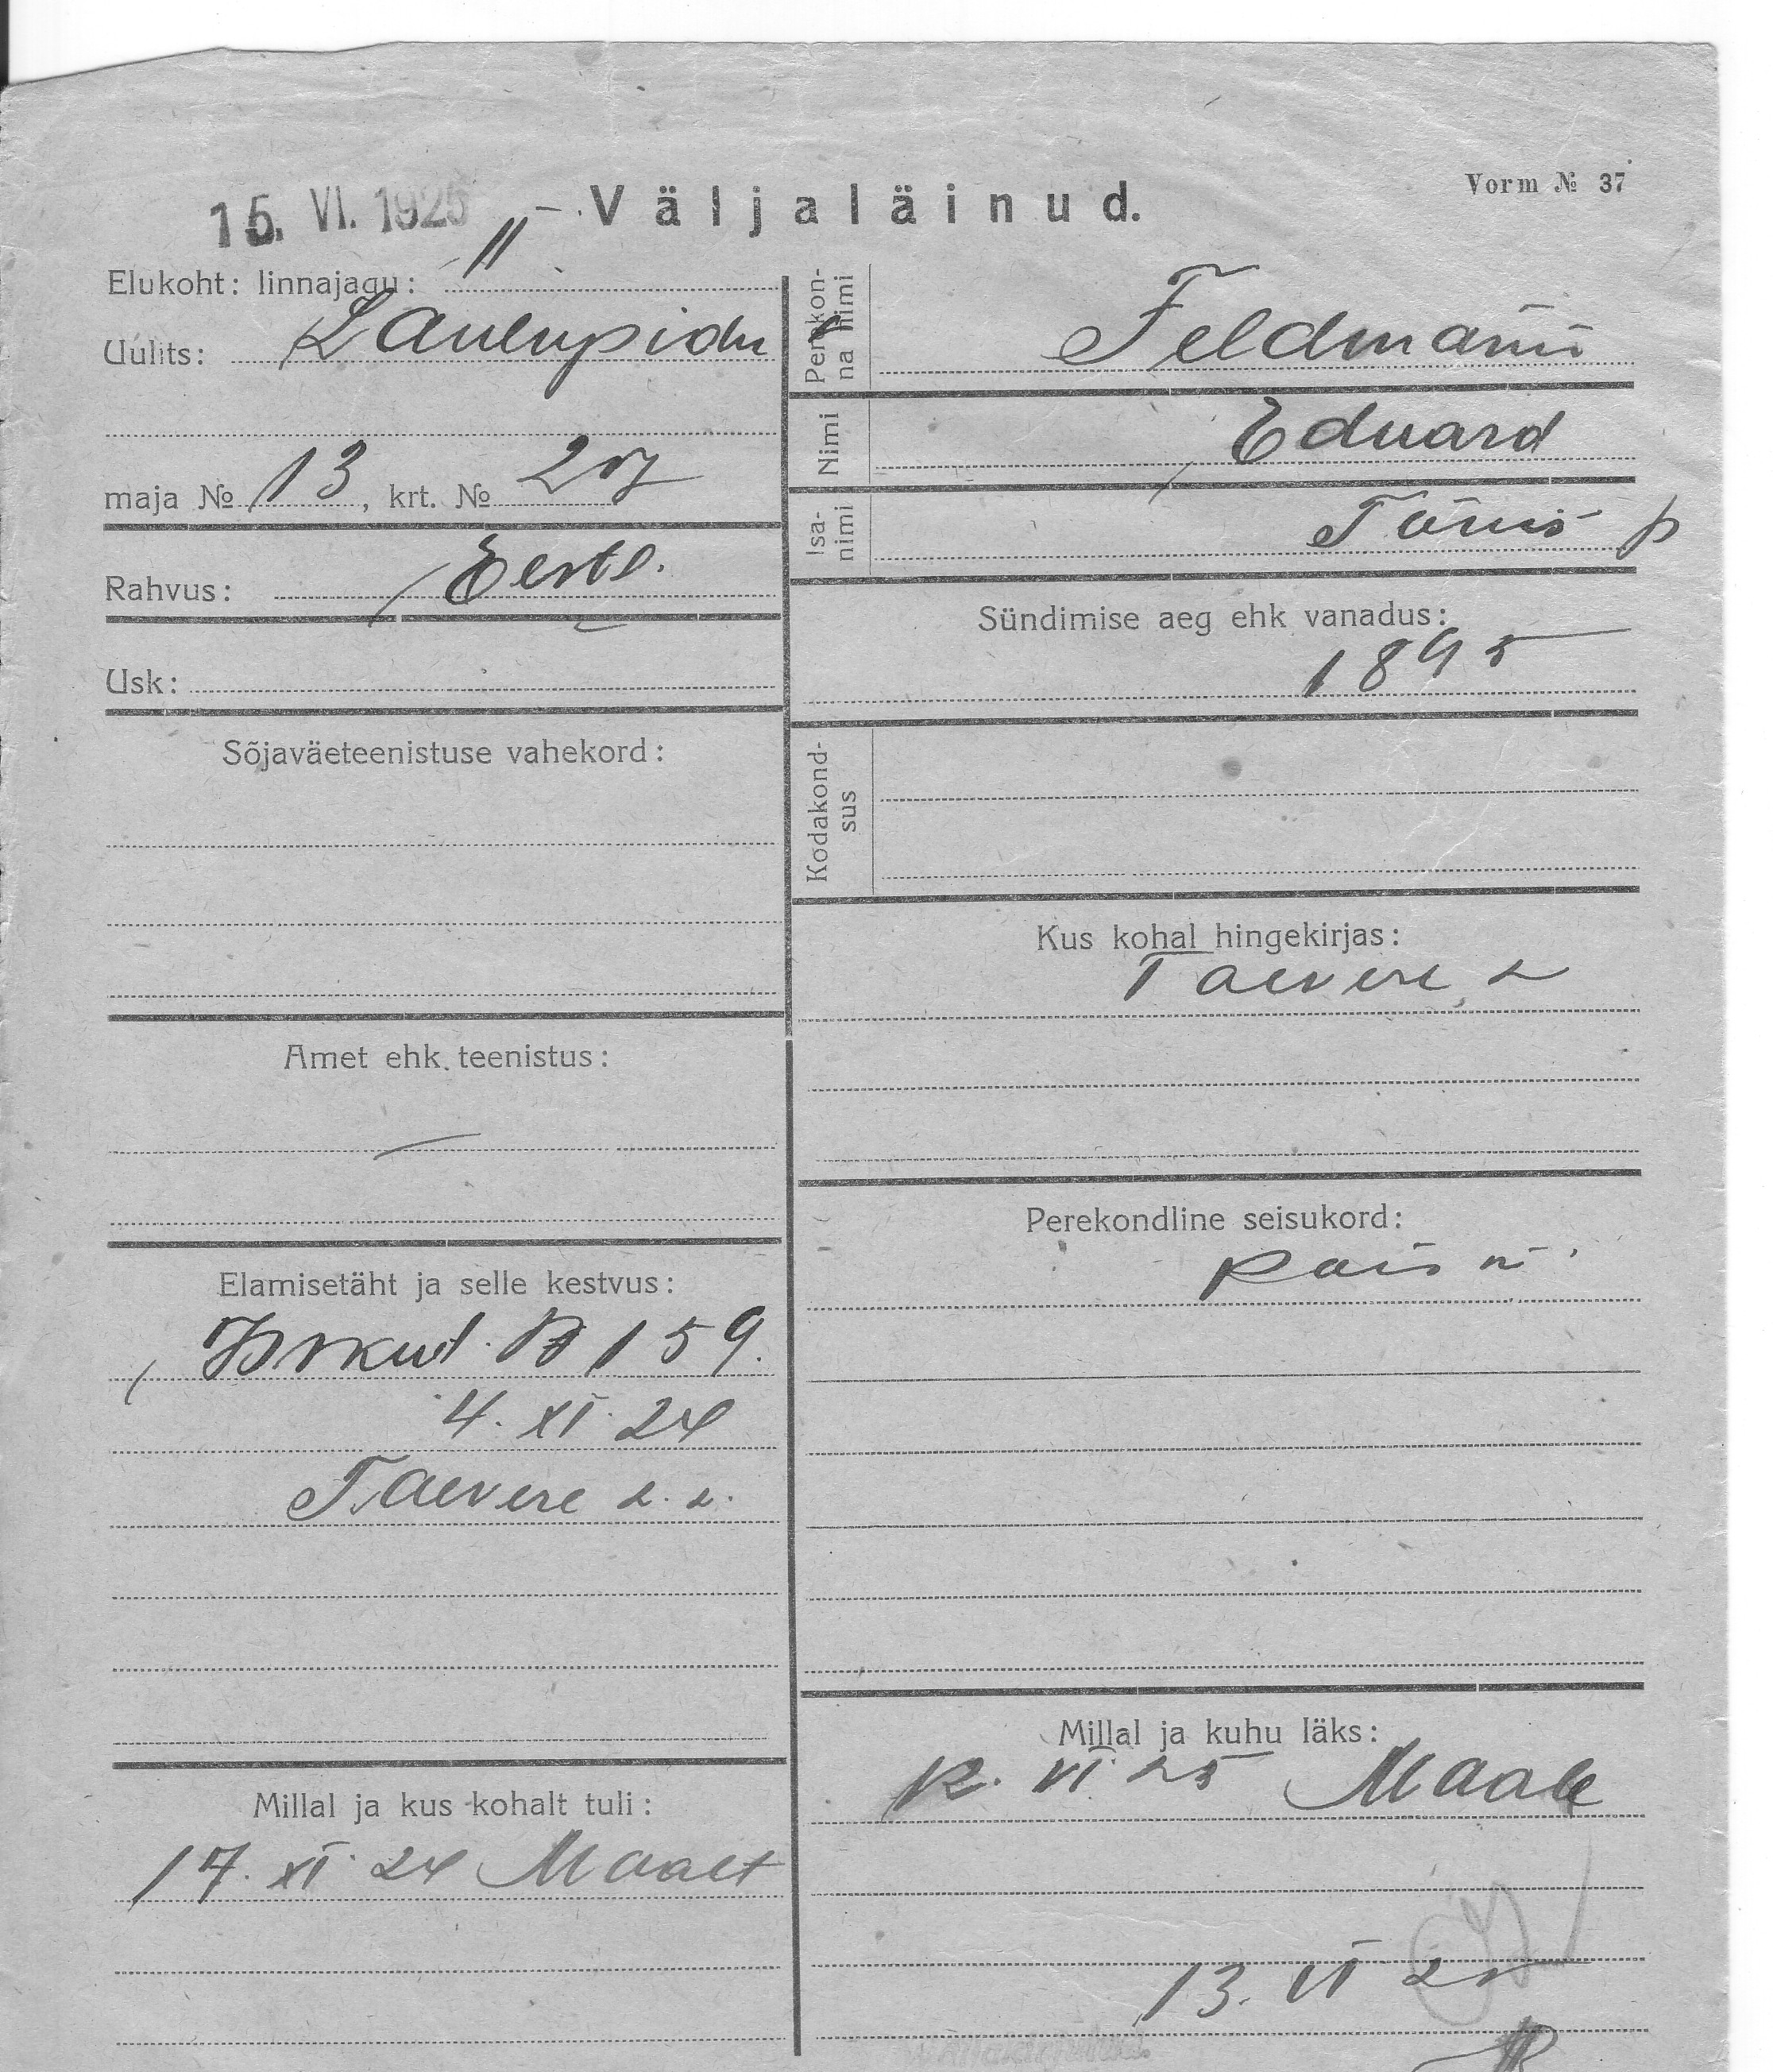 Vorm № 37
15. VI. 1925 Väljaläinud.
Elukoht: linnajagu: II
Uulits: Laulupidu
maja № 13, krt. № 27
Rahvus: Eestl.
Usk:
Sõjaväeteenistuse vahekord:
Amet ehk teenistus: —
Elamisetäht ja selle kestvus:
№ 159.
4. XI. 24
Taevere v. v.
Millal ja kus kohalt tuli:
17. XI. 24 Maalt
Perekonna nimi Feldmann
Nimi Eduard
Isanimi Tõnis p
Sündimise aeg ehk vanadus:
1895
Kodakondsus
Kus kohal hingekirjas:
Taevere v
Perekondline seisukord:
Millal ja kuhu läks:
12. VI. 25 Maale
13. VI 25